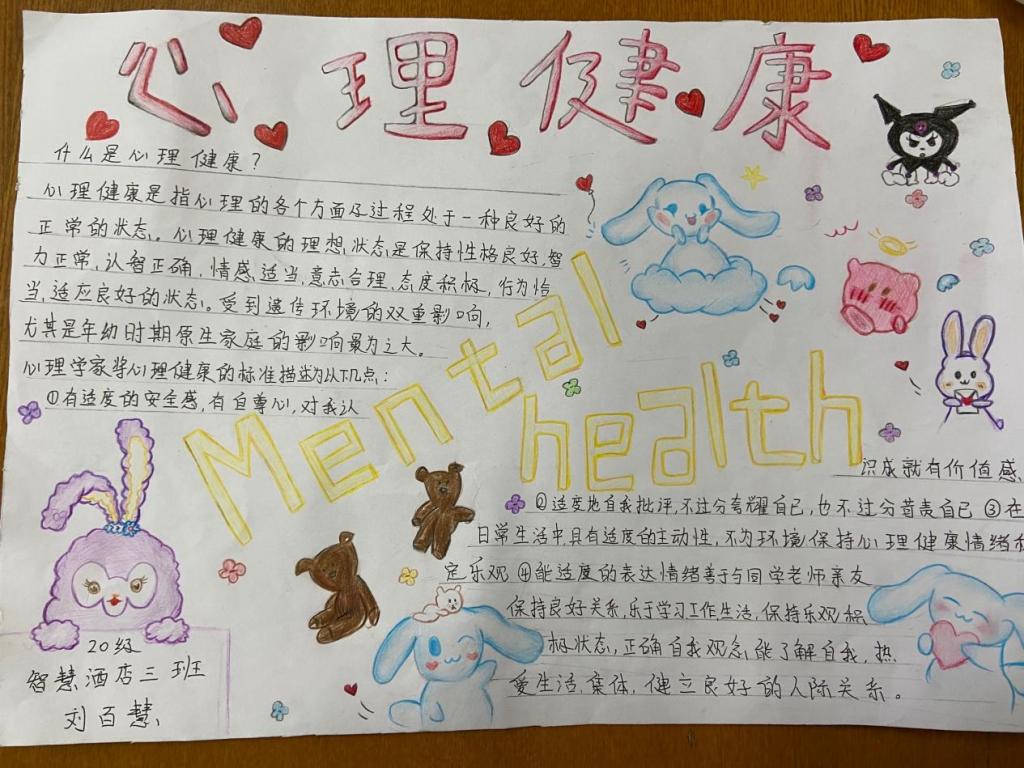 心理健康
什么是心理健康？
心理健康是指心理的各个方面及过程处于一种良好的
正常的状态。心理健康的理想状态是保持性格良好,智
力正常,认智正确,情感适当,意志合理,态度积极,行为恰
当,适应良好的状态。受到遗传环境的双重影响,
尤其是年幼时期原生家庭的影响最为之大。
心理学家将心理健康的标准描述为以下几点:
①有适度的安全感,有自尊心,对我认
Mental
health
识成就有价值感,
②适度地自我批评,不过分夸耀自己,也不过分苛责自己③在
日常生活中,具有适度的主动性,不为环境保持心理健康情绪稳
定乐观④能适度的表达情绪善于与同学老师亲友
保持良好关系,乐于学习工作生活,保持乐观积
极状态,正确自我观念能了解自我,热
爱生活,集体,健立良好的人际关系。
20级
智慧酒店三班
刘百慧